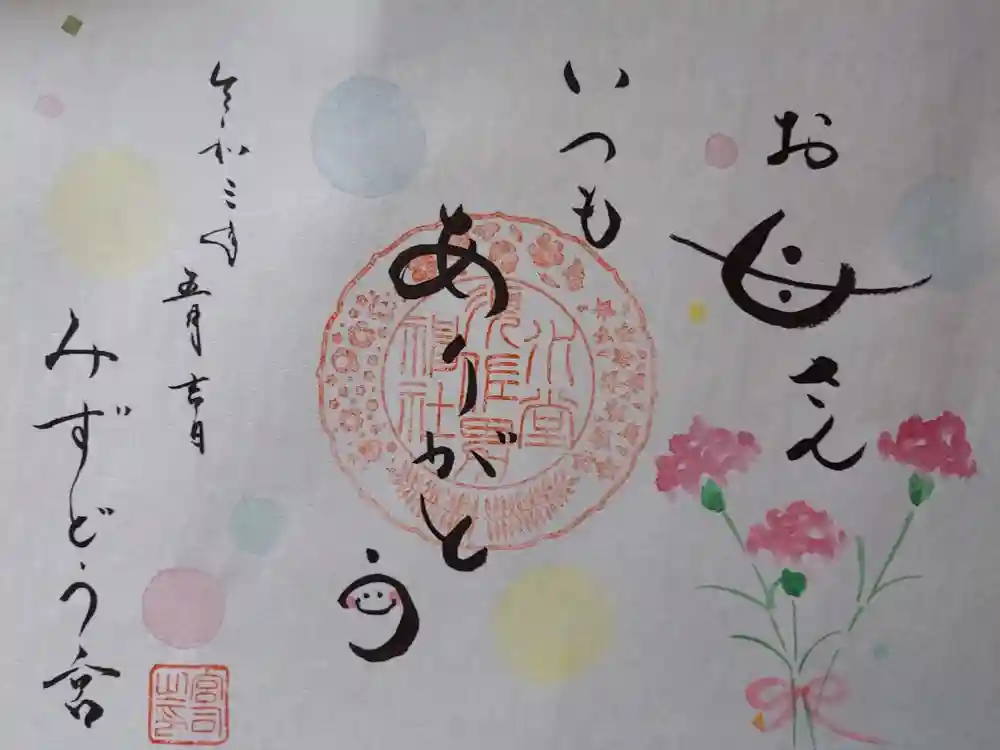 おかあさん
いつも
ありがとう
令和三年
五月吉日
みずどう宮
水堂
須佐男
神社
宮司
之印